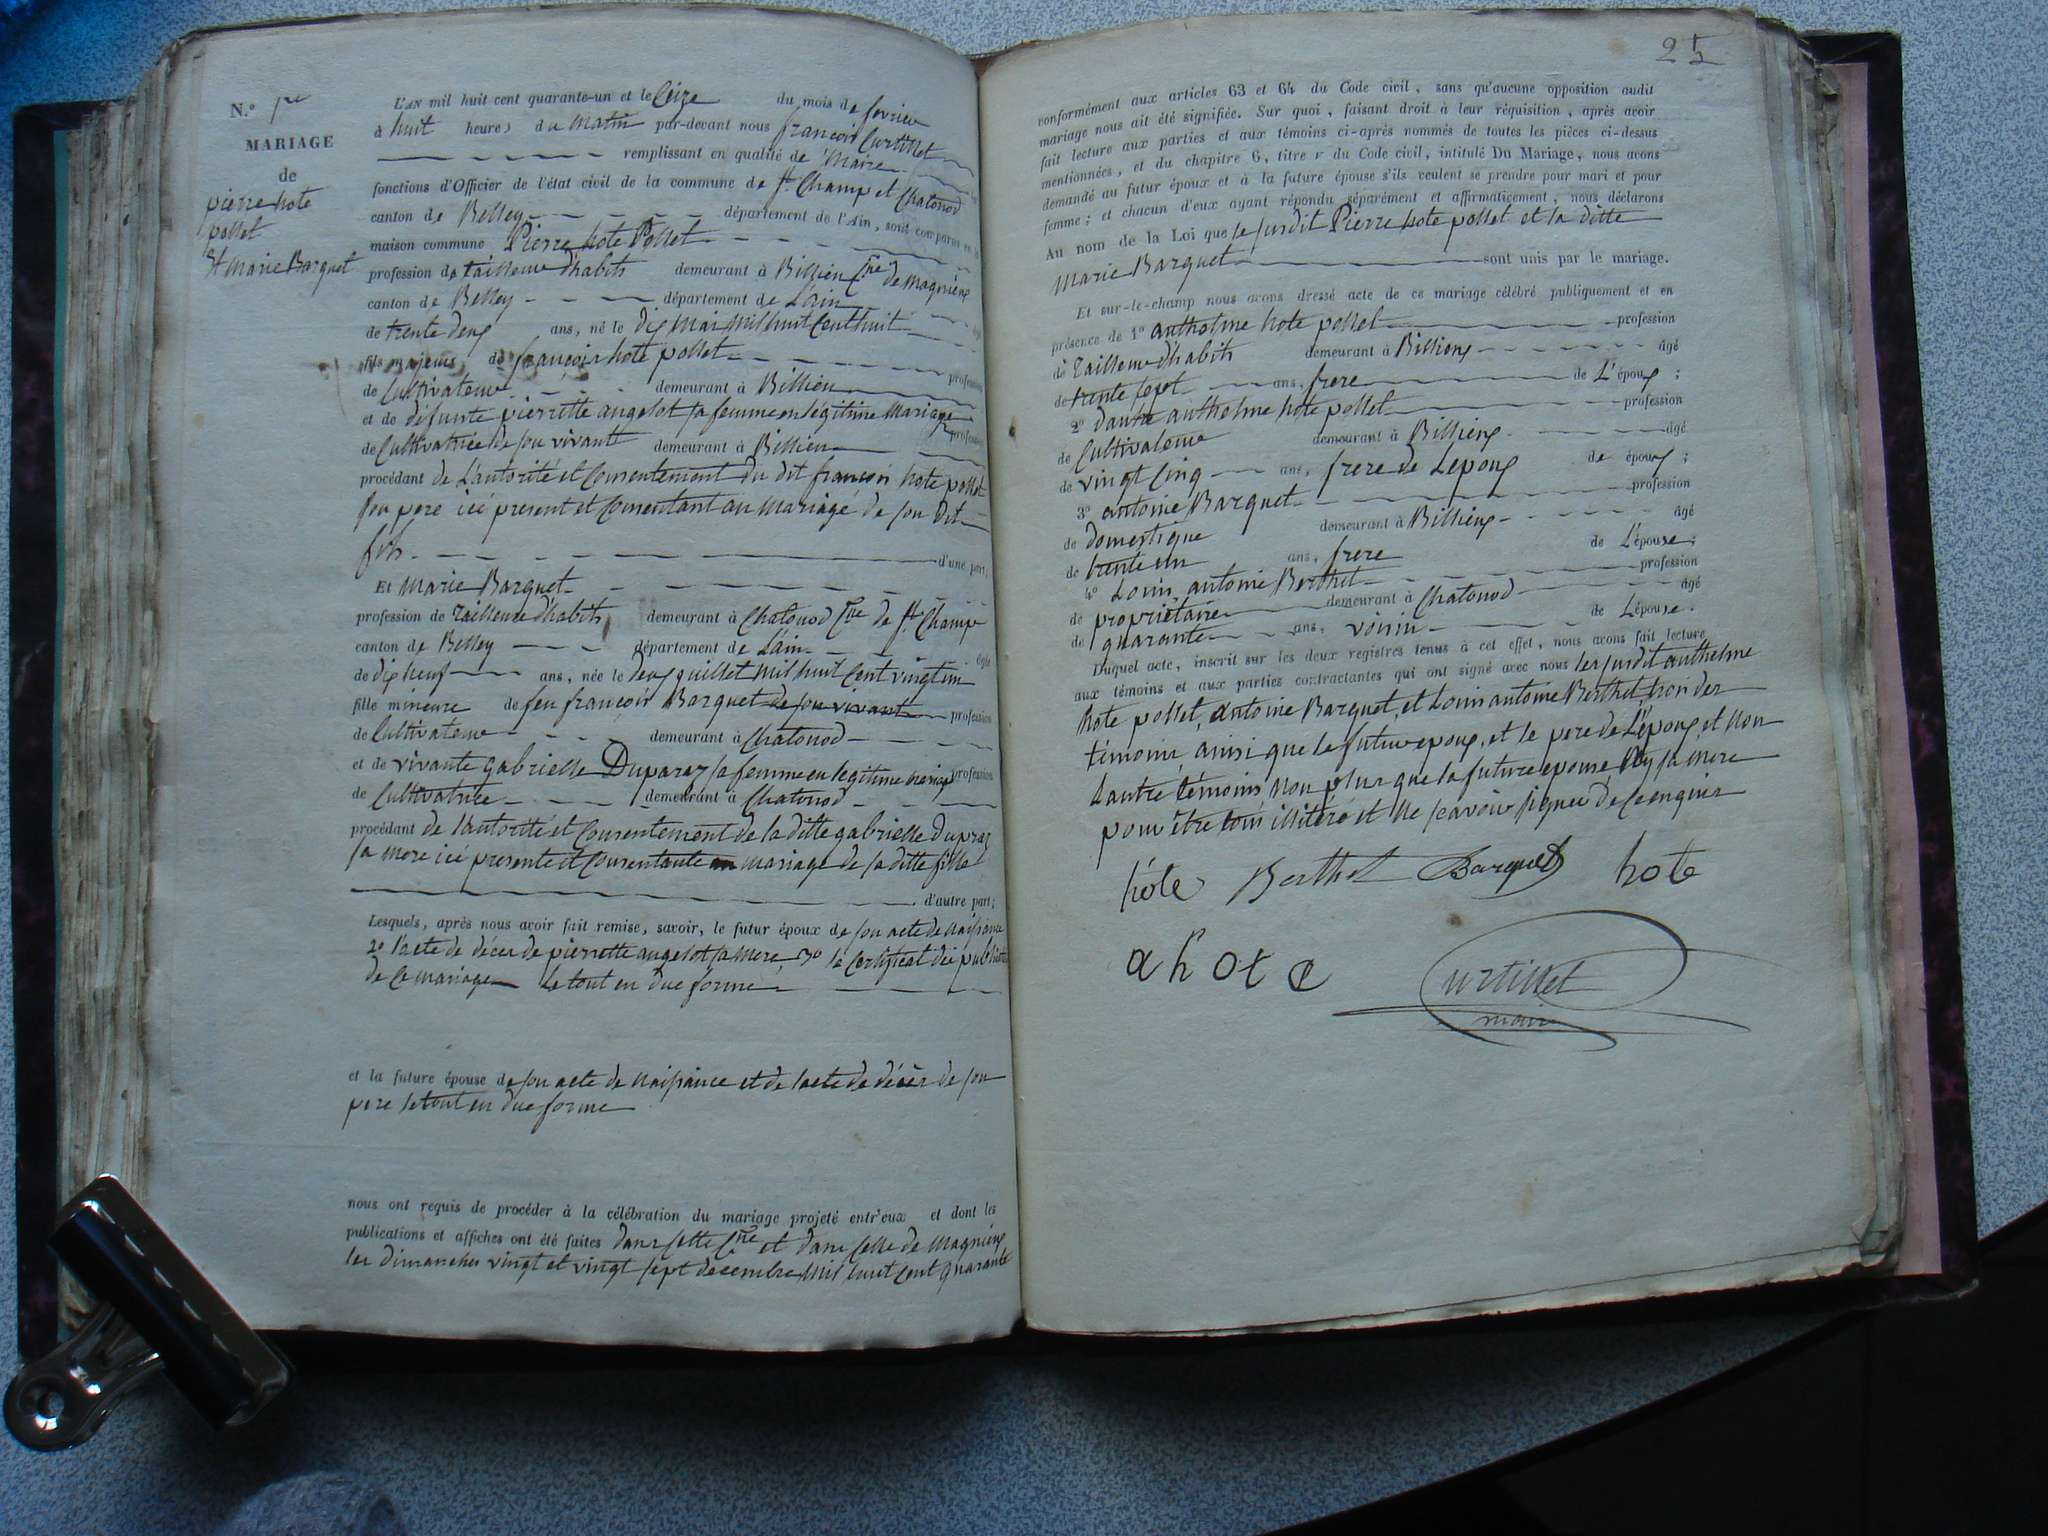 N.º 1er
MARIAGE
de
pierre hote
pollet
Et Marie Barquet
L'AN mil huit cent quarante-un et le Ceize du mois de fevrier
à huit heures du matin par-devant nous françois Curtillet
remplissant en qualité de Maire
fonctions d'Officier de l'état civil de la commune de St Champ et Chatonod
canton de Belley département de l'Ain, sont comparus en la
maison commune Pierre hote Pollet
profession de tailleur d'habits demeurant à Billieu Cne de Magnieux
canton de Belley département de L'ain
de trente deux ans, né le dix Mai Mil huit Cent huit
fils majeur de françois hote pollet
de Cultivateur demeurant à Billieu profession
et de défunte pierrette angelot sa femme en légitime Mariage
de Cultivatrice de son vivant demeurant à Billieu profession
procédant de L'autorité et Consentement du dit françois hote pollet
son pere icé present et Consentant au Mariage de son dit
fils d'une part;
Et Marie Barquet
profession de Tailleuse d'habits demeurant à Chatonod Cne de St Champ
canton de Belley département de L'ain âgée
de dix neuf ans, née le deux Juillet Mil huit Cent vingt un
fille mineure de feu françois Barquet de son vivant profession
de Cultivateur demeurant à Chatonod
et de vivante gabrielle Dupraz sa femme en legitime mariage profession
de Cultivatrice demeurant à Chatonod
procédant de l'autorité et Consentement de la ditte gabrielle Dupraz
sa mere icé presente et Consentante au mariage de sa ditte fille
d'autre part;
Lesquels, après nous avoir fait remise, savoir, le futur époux de son acte de Naissance
2º l'acte de décès de pierrette angelot sa Mere 3º le Certificat de publication
de Ce mariage le tout en due forme
et la future épouse de son acte de Naissance et de l'acte de décès de son
pere le tout en due forme
nous ont requis de procéder à la célébration du mariage projeté entr'eux et dont les
publications et affiches ont été faites dans Cette Cne et dans Celle de Magnieux
les dimanches vingt et vingt sept decembre Mil huit Cent quarante
25
conformément aux articles 63 et 64 du Code civil, sans qu'aucune opposition audit
mariage nous ait été signifiée. Sur quoi, faisant droit à leur réquisition, après avoir
fait lecture aux parties et aux témoins ci-après nommés de toutes les pièces ci-dessus
mentionnées, et du chapitre 6, titre v du Code civil, intitulé Du Mariage, nous avons
demandé au futur époux et à la future épouse s'ils veulent se prendre pour mari et pour
femme; et chacun d'eux ayant répondu séparément et affirmativement, nous déclarons
Au nom de la Loi que le susdit Pierre hote pollet et la ditte
Marie Barquet sont unis par le mariage.
Et sur-le-champ nous avons dressé acte de ce mariage célébré publiquement et en
présence de 1º anthelme hote pollet profession
de Tailleur d'habits demeurant à Billieux âgé
de trente sept ans, frere de L'époux;
2º d'autre anthelme hote pollet profession
de Cultivateur demeurant à Billieux âgé
de vingt Cinq ans, frere de Lepoux de époux;
3º antoine Barquet profession
de domestique demeurant à Billieux âgé
de trente un ans, frere de L'épouse;
4º Louis antoine Berthet profession
de propriétaire demeurant à Chatonod âgé
de quarante ans, voisin de Lépouse.
Duquel acte, inscrit sur les deux registres tenus à cet effet, nous avons fait lecture
aux témoins et aux parties contractantes qui ont signé avec nous les susdit anthelme
hote pollet, antoine Barquet, et Louis antoine Berthet trois des
témoins, ainsi que le futur epoux, et le pere de L'époux, et Non
L'autre témoins Non plus que la future epouse Ny sa mere
pour être tous illitéré et Ne scavoir signer de Ce enquis
hóte Berthet Barquet hote
a hote Curtillet
maire